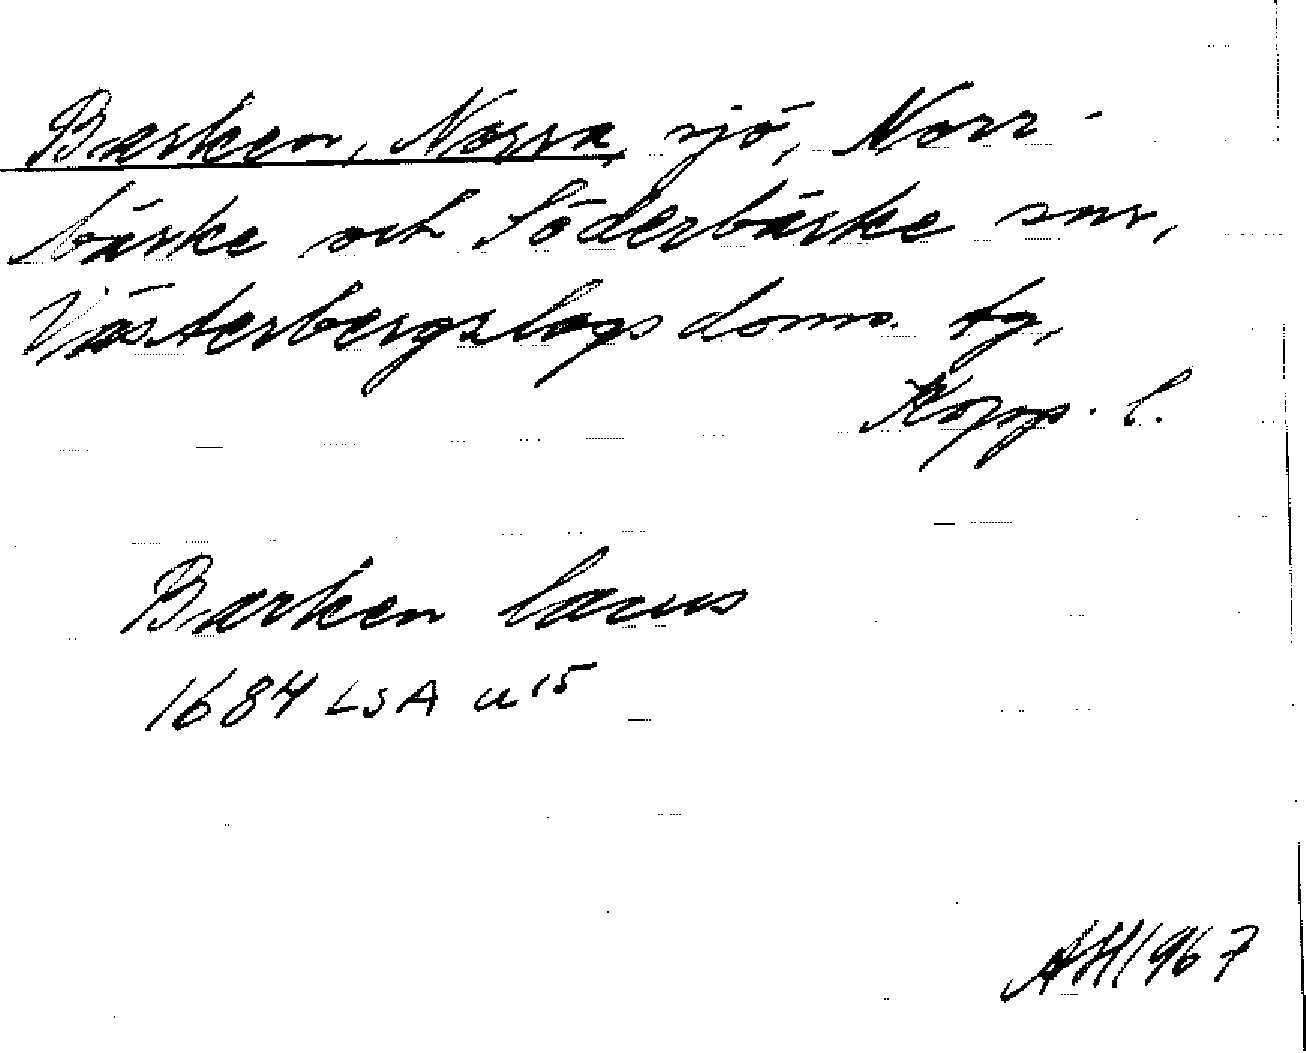 Barken, Norra, sjö, Norr-
bärke och Söderbärke snr,
Västerbergslags doms. tg,
Kopp. l.
Barken lacus
1684 LSA u15
AH 1967